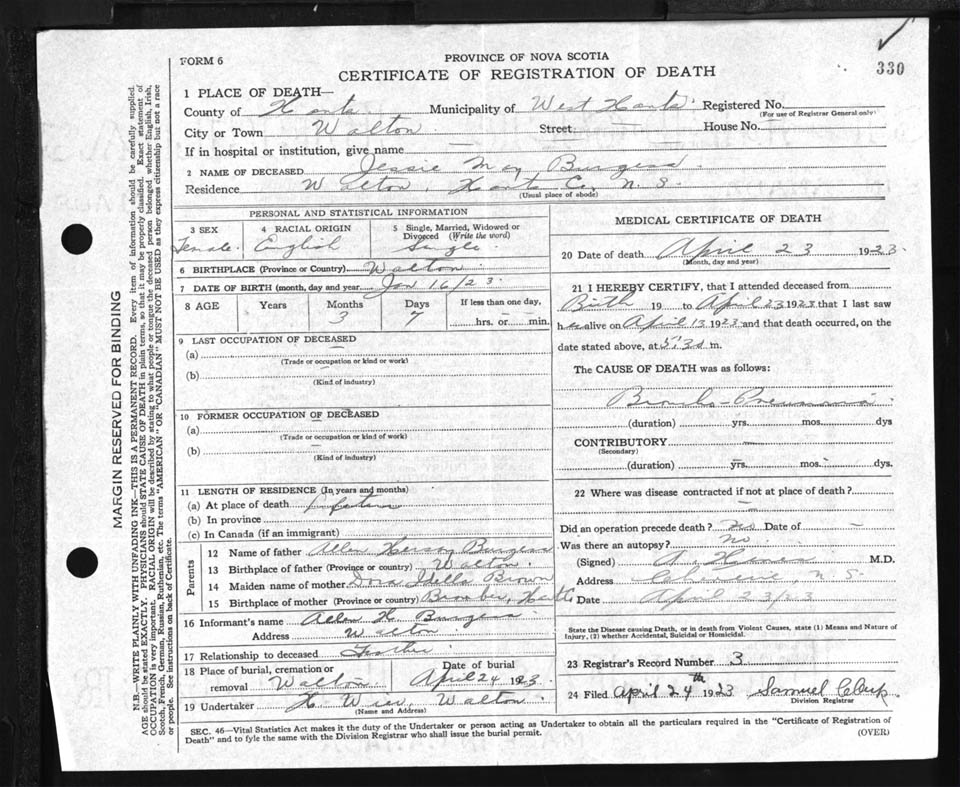 330
FORM 6
PROVINCE OF NOVA SCOTIA
CERTIFICATE OF REGISTRATION OF DEATH
1 PLACE OF DEATH—
County of Hants Municipality of West Hants Registered No.
(For use of Registrar General only)
City or Town Walton Street — House No. —
If in hospital or institution, give name —
2 NAME OF DECEASED Jessie May Burgess
Residence Walton Hants Co. N. S.
(Usual place of abode)
PERSONAL AND STATISTICAL INFORMATION
3 SEX 4 RACIAL ORIGIN 5 Single, Married, Widowed or Divorced (Write the word)
Female English Single
6 BIRTHPLACE (Province or Country) Walton
7 DATE OF BIRTH (month, day and year) Jan 16/23
8 AGE Years Months Days If less than one day,
3 7 hrs. or min.
9 LAST OCCUPATION OF DECEASED
(a)
(Trade or occupation or kind or work)
(b)
(Kind of industry)
10 FORMER OCCUPATION OF DECEASED
(a)
(Trade or occupation or kind of work)
(b)
(Kind of industry)
11 LENGTH OF RESIDENCE (In years and months)
(a) At place of death
(b) In province
(c) In Canada (if an immigrant)
Parents
12 Name of father Allen Burgess
13 Birthplace of father (Province or country) Walton
14 Maiden name of mother Dora Brown
15 Birthplace of mother (Province or country)
16 Informant's name Allen H. Burgess
Address Walton
17 Relationship to deceased Father
18 Place of burial, cremation or Date of burial
removal Walton April 24 1923
19 Undertaker H. Wier, Walton
(Name and Address)
MEDICAL CERTIFICATE OF DEATH
20 Date of death April 23 1923
(Month, day and year)
21 I HEREBY CERTIFY, that I attended deceased from
Birth 19 to April 23 1923 that I last saw
her alive on April 13 1923 and that death occurred, on the
date stated above, at 5.30 m.
The CAUSE OF DEATH was as follows:
Broncho-Pneumonia
(duration) yrs. mos. dys
CONTRIBUTORY
(Secondary)
(duration) yrs. mos. dys.
22 Where was disease contracted if not at place of death?
Did an operation precede death? no Date of —
Was there an autopsy? no.
(Signed) M.D.
Address N S
Date April 23/23
State the Disease causing Death, or in death from Violent Causes, state (1) Means and Nature of
Injury, (2) whether Accidental, Suicidal or Homicidal.
23 Registrar's Record Number 3
24 Filed April 24th 1923 Samuel
Division Registrar
SEC. 46—Vital Statistics Act makes it the duty of the Undertaker or person acting as Undertaker to obtain all the particulars required in the "Certificate of Registration of
Death" and to fyle the same with the Division Registrar who shall issue the burial permit.
(OVER)
MARGIN RESERVED FOR BINDING
N.B.—WRITE PLAINLY WITH UNFADING INK—THIS IS A PERMANENT RECORD. Every item of information should be carefully supplied.
AGE should be stated EXACTLY. PHYSICIANS should STATE CAUSE OF DEATH in plain terms, so that it may be properly classified. Exact statement of
OCCUPATION is very important. RACIAL ORIGIN will be described by stating to what people or tongue the deceased person belonged whether English, Irish,
Scotch, French, German, Russian, Ruthenian, etc. The terms "AMERICAN" OR "CANADIAN" MUST NOT BE USED as they express citizenship but not a race
or people. See instructions on back of Certificate.